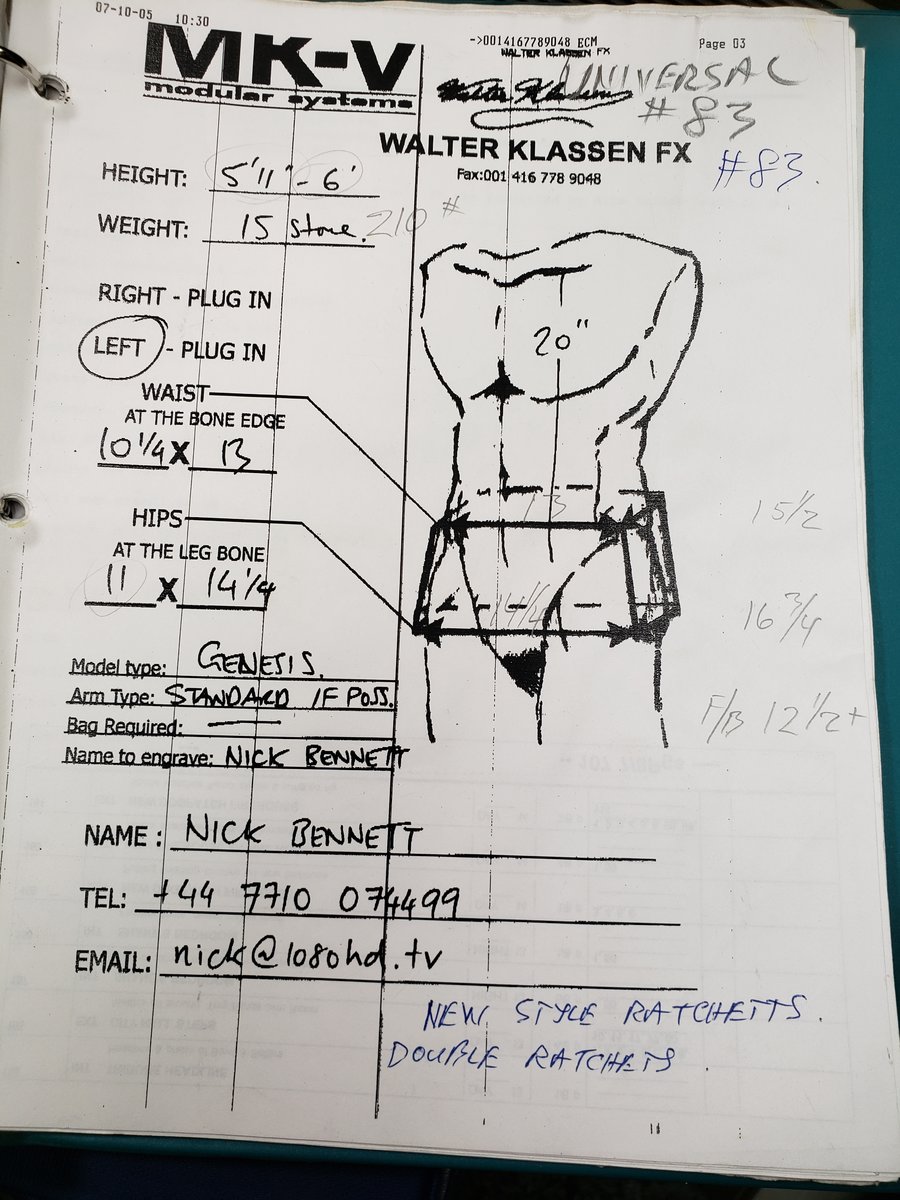 07-10-05 10:30
->0014167789048 ECM
Page 03
WALTER KLASSEN FX
MK-V
modular systems
UNIVERSAL
#83
WALTER KLASSEN FX
#83.
Fax:001 416 778 9048
HEIGHT: 5'11" - 6'
WEIGHT: 15 Stone. 210 #
RIGHT - PLUG IN
LEFT - PLUG IN
20"
WAIST
AT THE BONE EDGE
10 1/4 X 13
13
15 1/2
HIPS
AT THE LEG BONE
11 X 14 1/4
14 1/4
16 3/4
Model type: GENESIS.
Arm Type: STANDARD IF POSS.
F/B 12 1/2 +
Bag Required: —
Name to engrave: NICK BENNETT
NAME : NICK BENNETT
TEL: +44 7710 074499
EMAIL: nick@1080hd.tv
NEW STYLE RATCHETTS.
DOUBLE RATCHETS